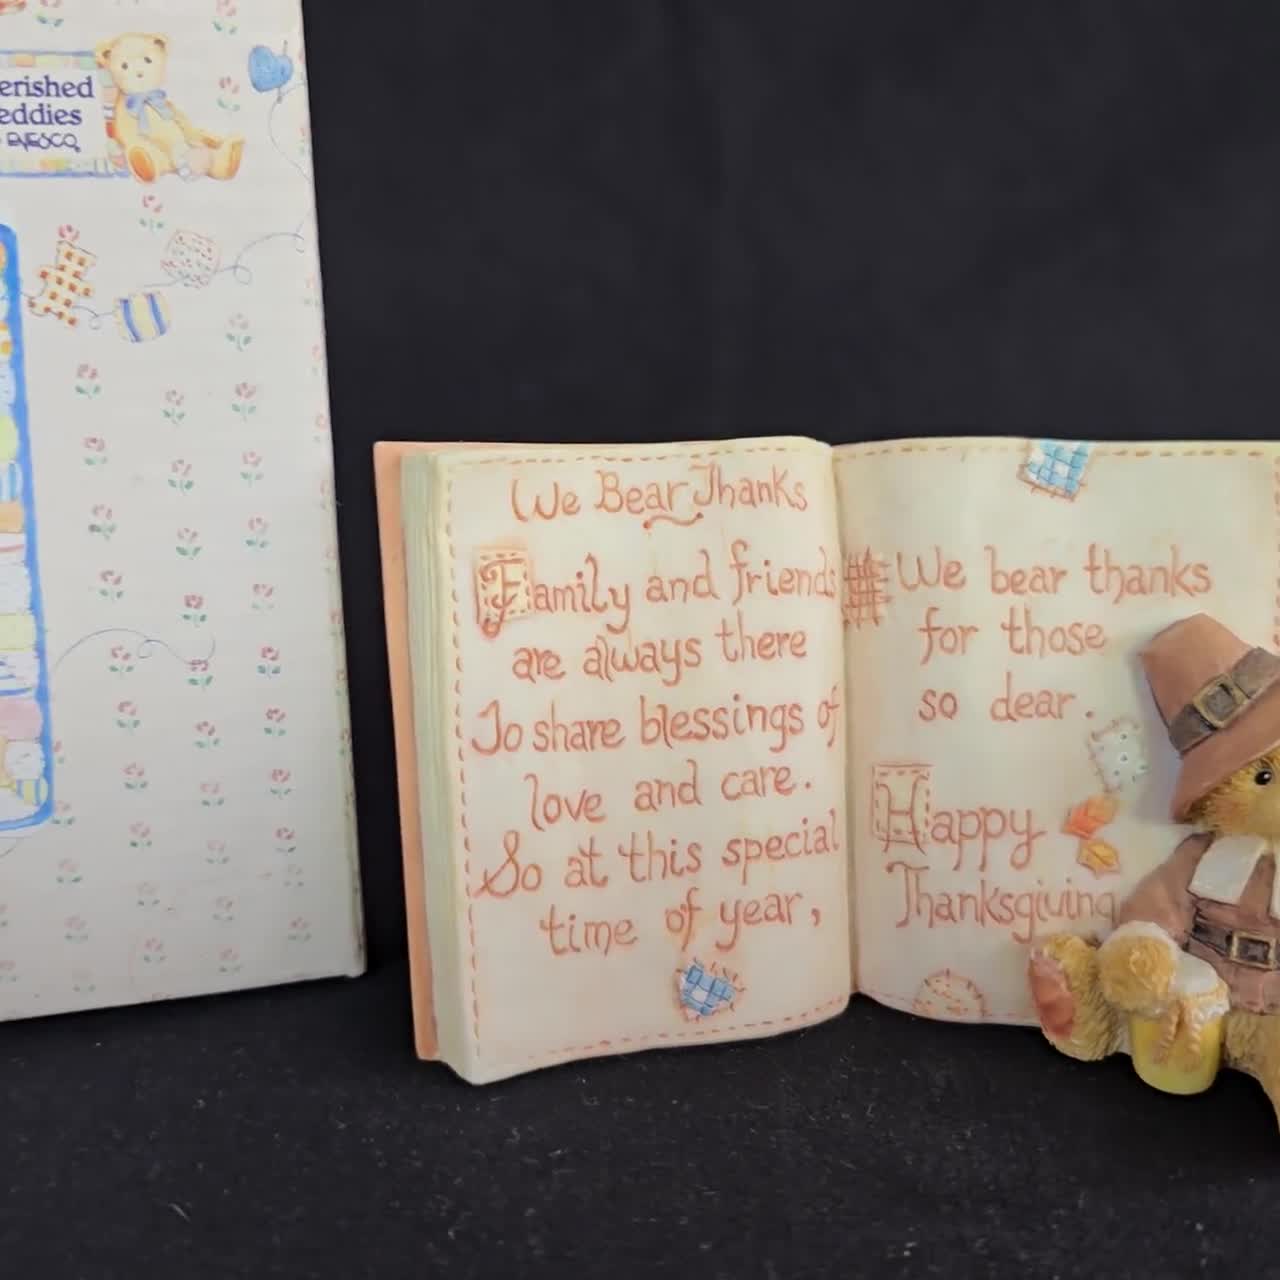 erished
eddies
ENESCO
We Bear Thanks
Family and friends
are always there
To share blessings of
love and care.
So at this special
time of year,
We bear thanks
for those
so dear.
Happy
Thanksgiving